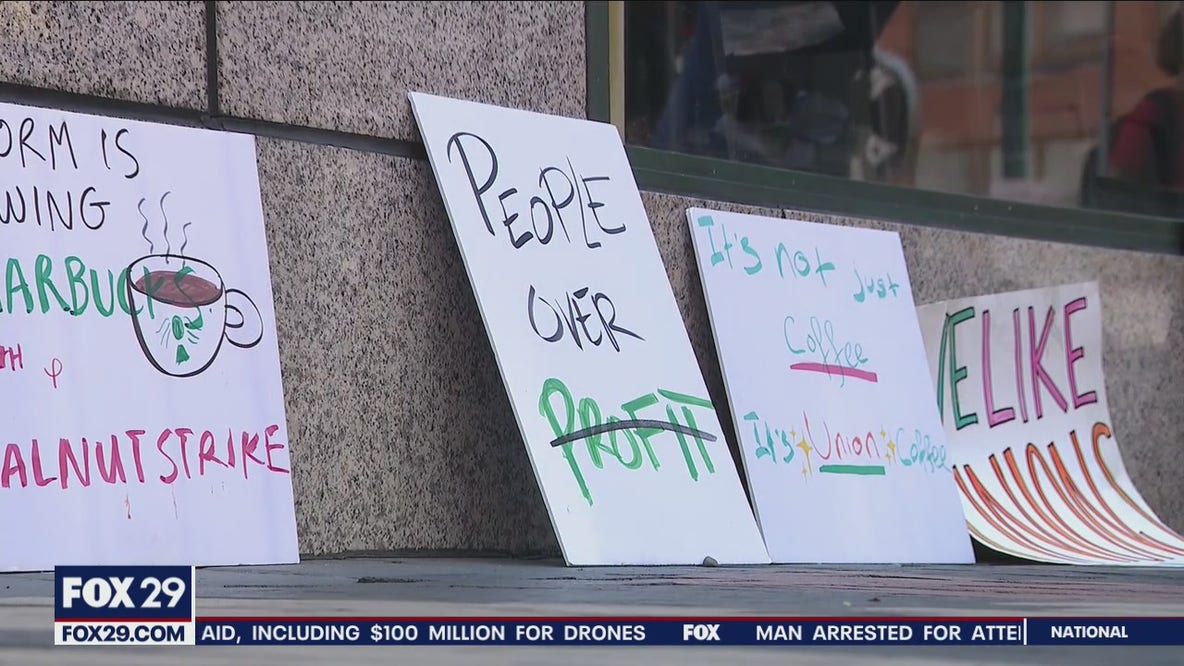 ORM IS
WING
ARBUCKS
TH &
ALNUT STRIKE
PEOPLE
OVER
PROFIT
It's not just
Coffee
It's Union Coffee
WE LIKE
UNIONS
FOX 29
FOX29.COM
AID, INCLUDING $100 MILLION FOR DRONES FOX MAN ARRESTED FOR ATTE
NATIONAL